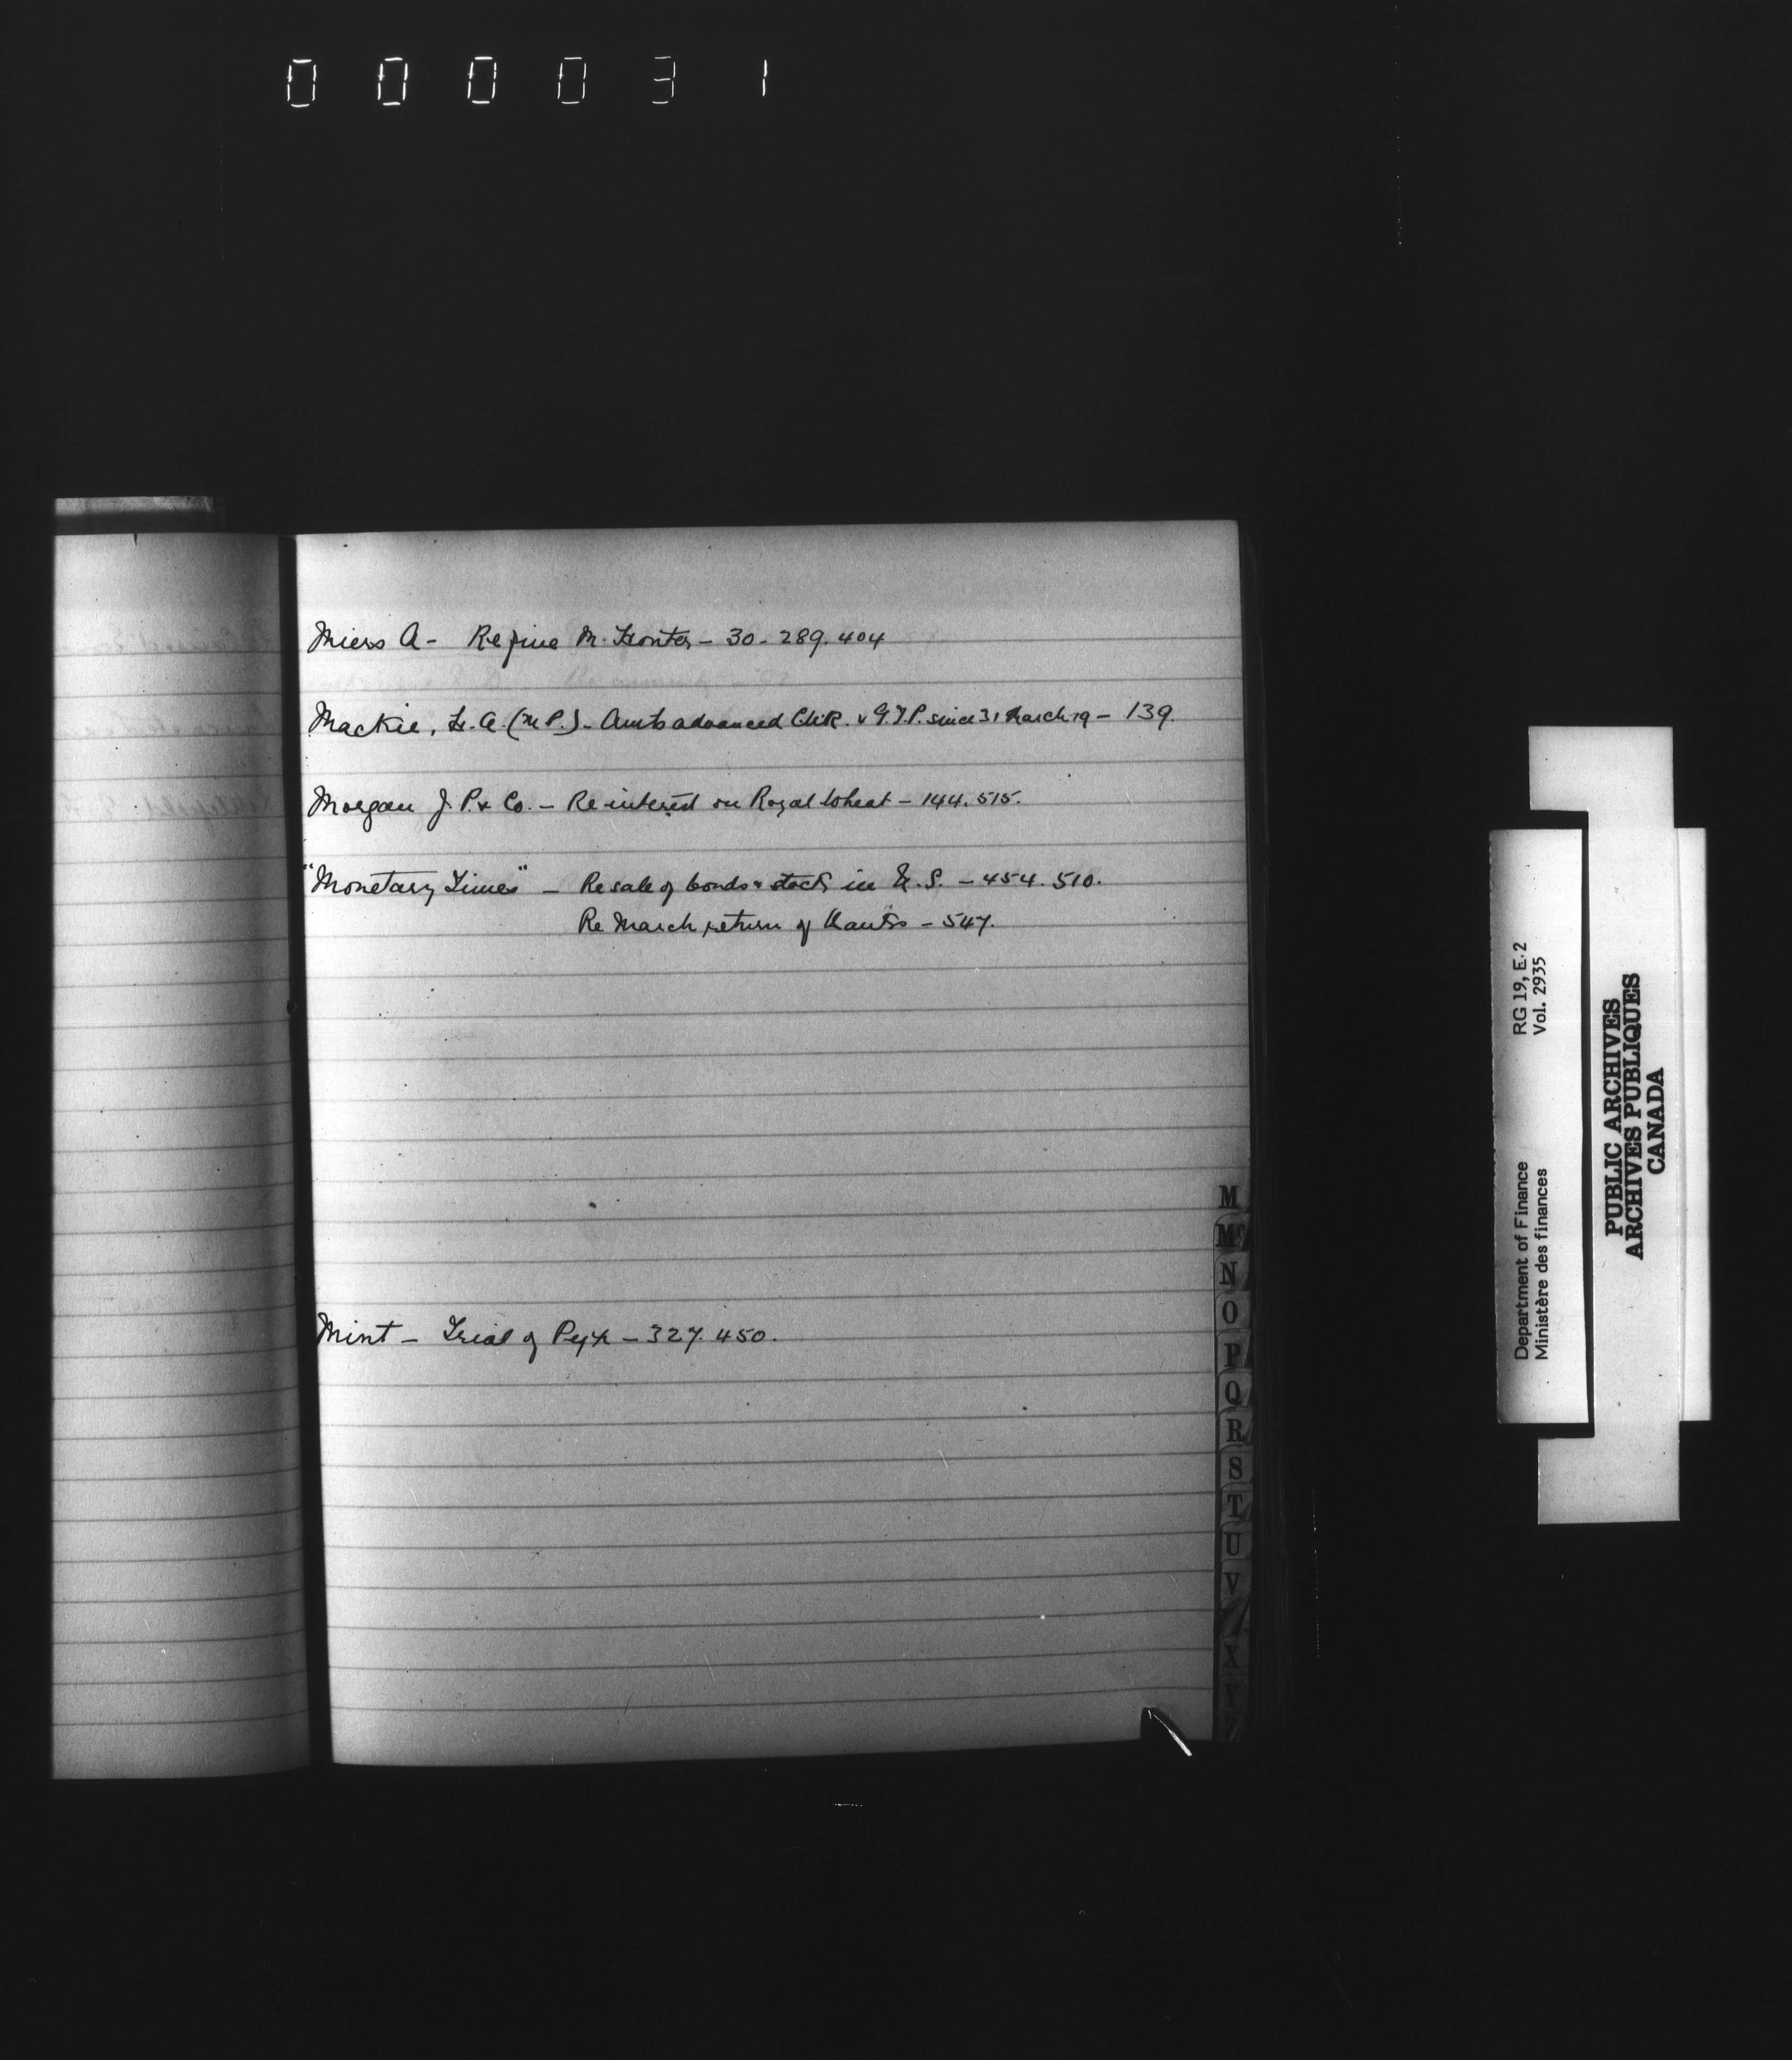 000031
Miers A - Re fine M. Honter - 30 - 289. 404
Mackie, H. A. (M P.) - Amts advanced C.N.R. & G.T.P. since 31 March 19 - 139.
Morgan J. P. & Co. - Re interest on Royal Wheat - 144. 515.
"Monetary Times" - Re sale of bonds & stock in U. S. - 454. 510.
Re March return of Banks - 547.
Mint - Trial of Pyx - 327. 450.
M
Mc
N
O
P
Q
R
S
T
U
V
X
Y
Department of Finance RG 19, E. 2
Ministère des finances Vol. 2935
PUBLIC ARCHIVES
ARCHIVES PUBLIQUES
CANADA